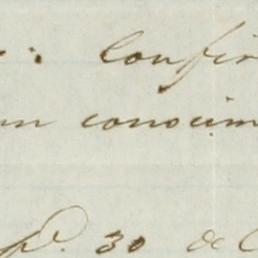 : Confir
un conocim
pº. 30 de C